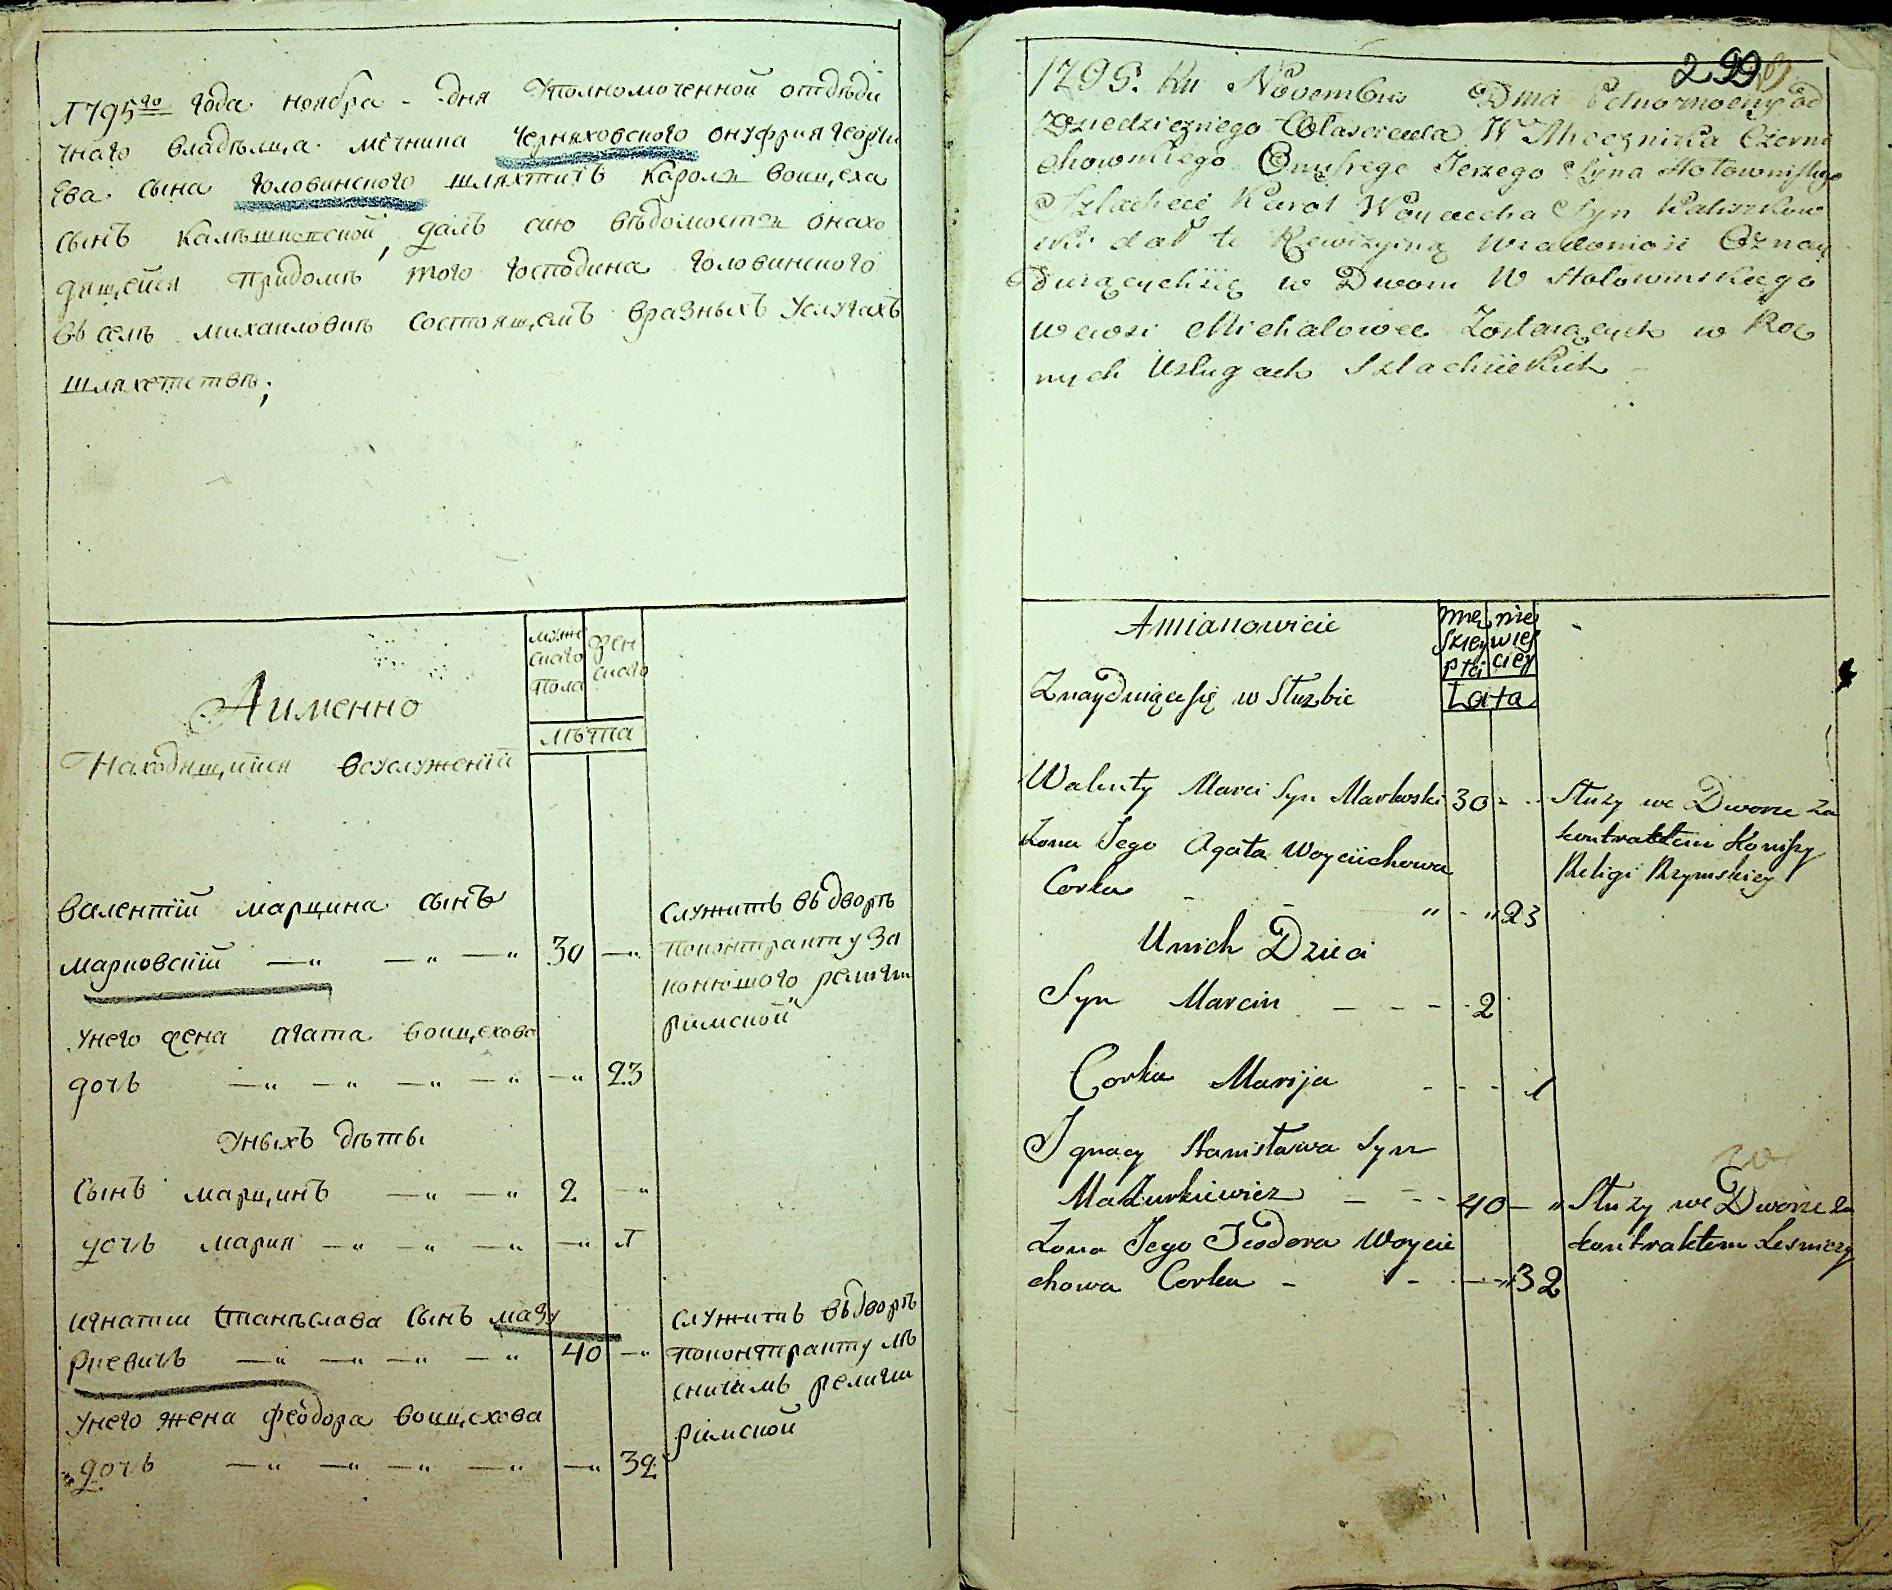 1795го года ноября - дня Уполномоченной отдѣди
чнаго владѣлца мечника Черняховского онуфрия георги
ева сына головинского шляхтичъ Кароль воицеха
сынъ калѣшковской, далъ сию вѣдомость онахо
дящейся придомѣ того господина головинского
всемъ михаиловиѣ состоящемъ вразныхъ услугахъ
шляхетствѣ;
Аименно
мужс
скаго
пола
жен
скаго
лѣта
Находящийся воуслужении
валентïй марцина сынъ
марковскïй — — — 30 —
служитъ въ дворѣ
поконтракту за
конюшого религи
римской
Унего жена агата воицехова
дочь — — — — — 23
Уныхъ дѣти
Сынъ марцинъ — — 2 —
дочь мария — — — — 1
игнатий Станѣслава Сынъ мазу
ркевичь — — — — 40 —
служитъ въ дворѣ
поконтракту лѣ
сничимъ религи
римской
Унего жена феодора воицехова
дочь — — — — — 32
299
1795. Ru Novembra Dnia Pełnomocny od
Dziedzicznego Własciciela W Miecznika Czernie
chowskiego Onufrego Jerzego Syna Hołowinskiego
Szlachcic Karol Woyciecha Syn
dał te Rewizyiną Wiadomosc Oznay
duiących się w Dwom W Hołowinskiego
we wsi Michałowce Zostaiących w Roz
nych Usługach Szlacheckich
Amianowicie
męz
skiey
płci
nie
wies
ciey
Lata
Znayduiące się w Służbie
Walenty Marci Syn Markowski 30 - -
Służy we Dworze za
kontraktem Koniszy
Religi Rzymskiey
Żona Jego Agata Woyciechowa
Corka - - " - " 23
Unich Dzieci
Syn Marcin - - - - 2
Corka Maryja - - - 1
Jgnacy Stanisława Syn
Mazurkiewicz - - - 40 - "
Służy we Dworze za
kontraktem Lesniczy
Żona Jego Teodora Woycie
chowa Corka - - - " 32